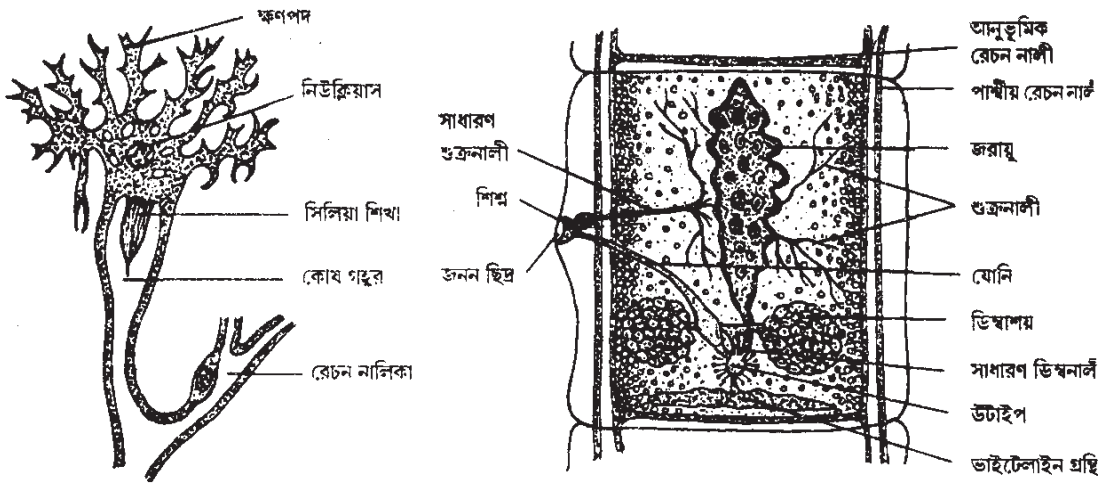 ক্ষণপদ
নিউক্লিয়াস
সিলিয়া শিখা
কোষ গহ্বর
রেচন নালিকা
সাধারণ
শুক্রনালী
শিশ্ন
জনন ছিদ্র
আনুভূমিক
রেচন নালী
পার্শ্বীয় রেচন নালী
জরায়ু
শুক্রনালী
যোনি
ডিম্বাশয়
সাধারণ ডিম্বনালী
উটাইপ
ভাইটেলাইন গ্রন্থি